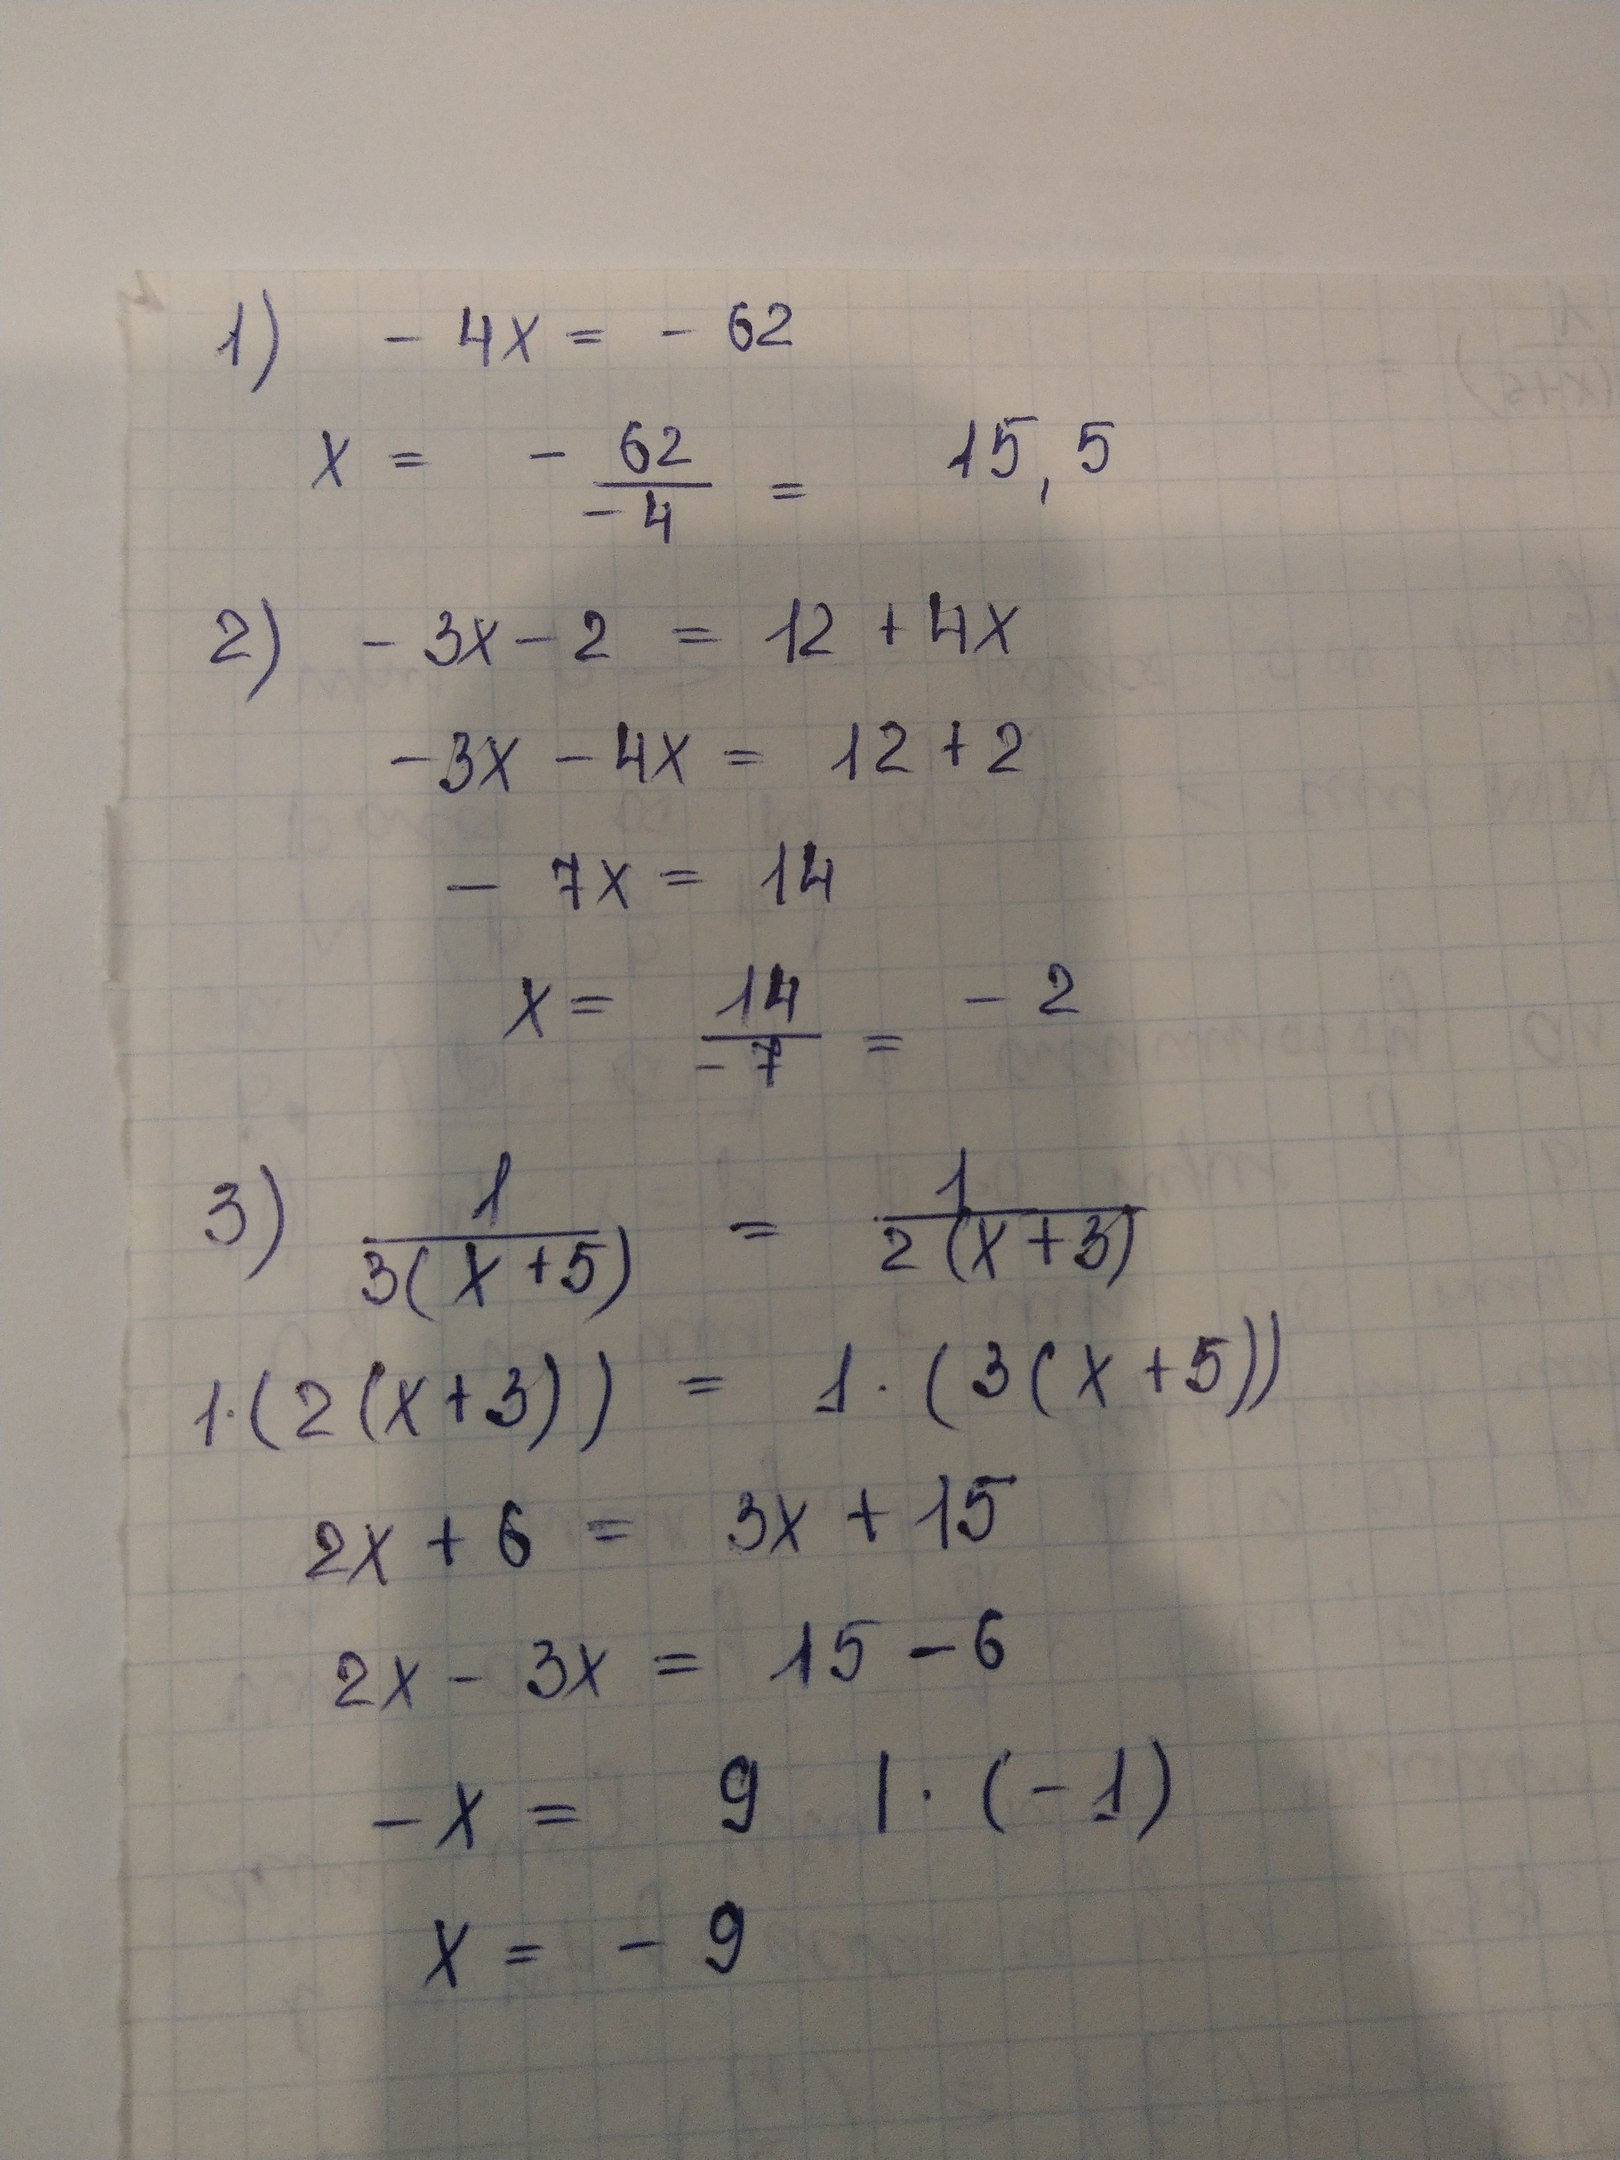 1) - 4x = - 62
x = - 62/-4 = 15,5
2) - 3x - 2 = 12 + 4x
-3x - 4x = 12 + 2
- 7x = 14
x = 14/-7 = - 2
3) 1/3(x+5) = 1/2(x+3)
1·(2(x+3)) = 1·(3(x+5))
2x + 6 = 3x + 15
2x - 3x = 15 - 6
-x = 9 |·(-1)
x = - 9